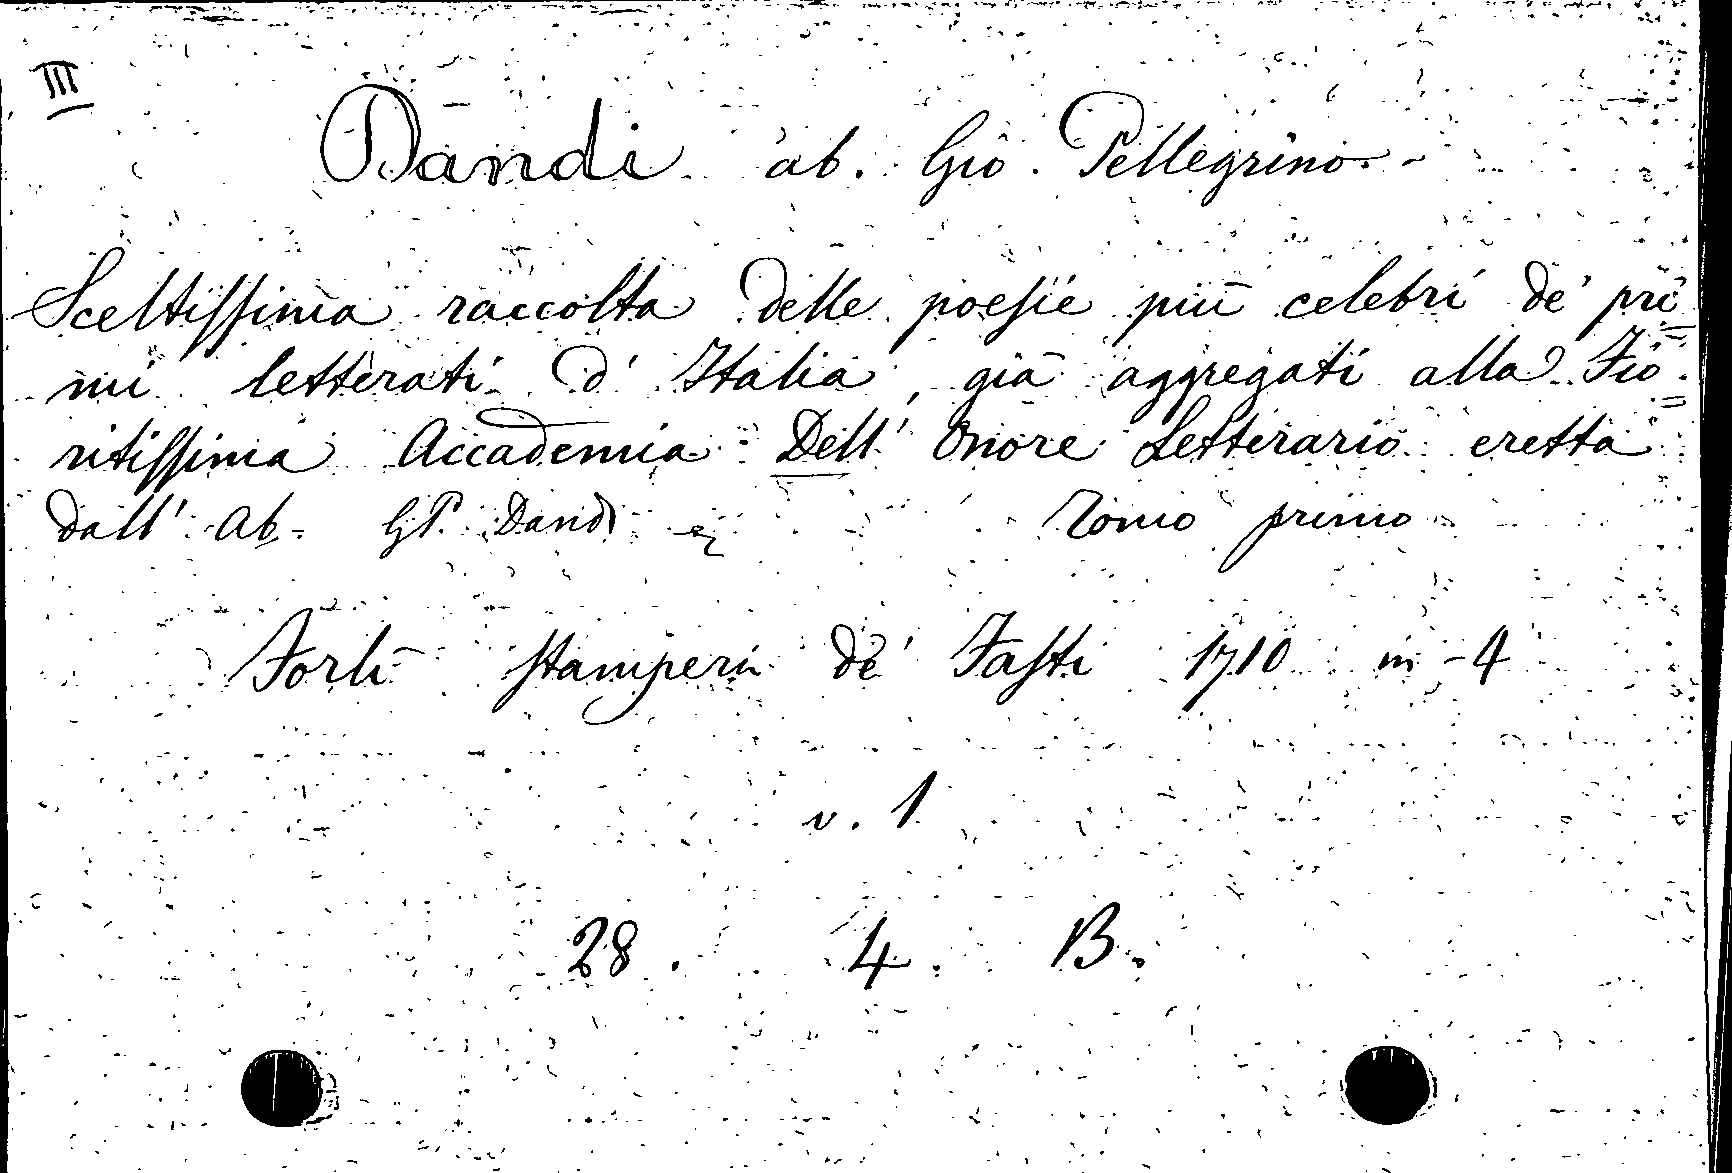 III
Dandi ab. Gio. Pellegrino
Sceltissima raccolta delle poesie più celebri de' pri=
mi letterati d' Italia, già aggregati alla Fio=
ritissima Accademia Dell' Onore Letterario eretta
dall' Ab. G.P. Dandi Tomo primo
Forlì stamperia de' Fasti 1710 in-4
v. 1
28. 4. B.